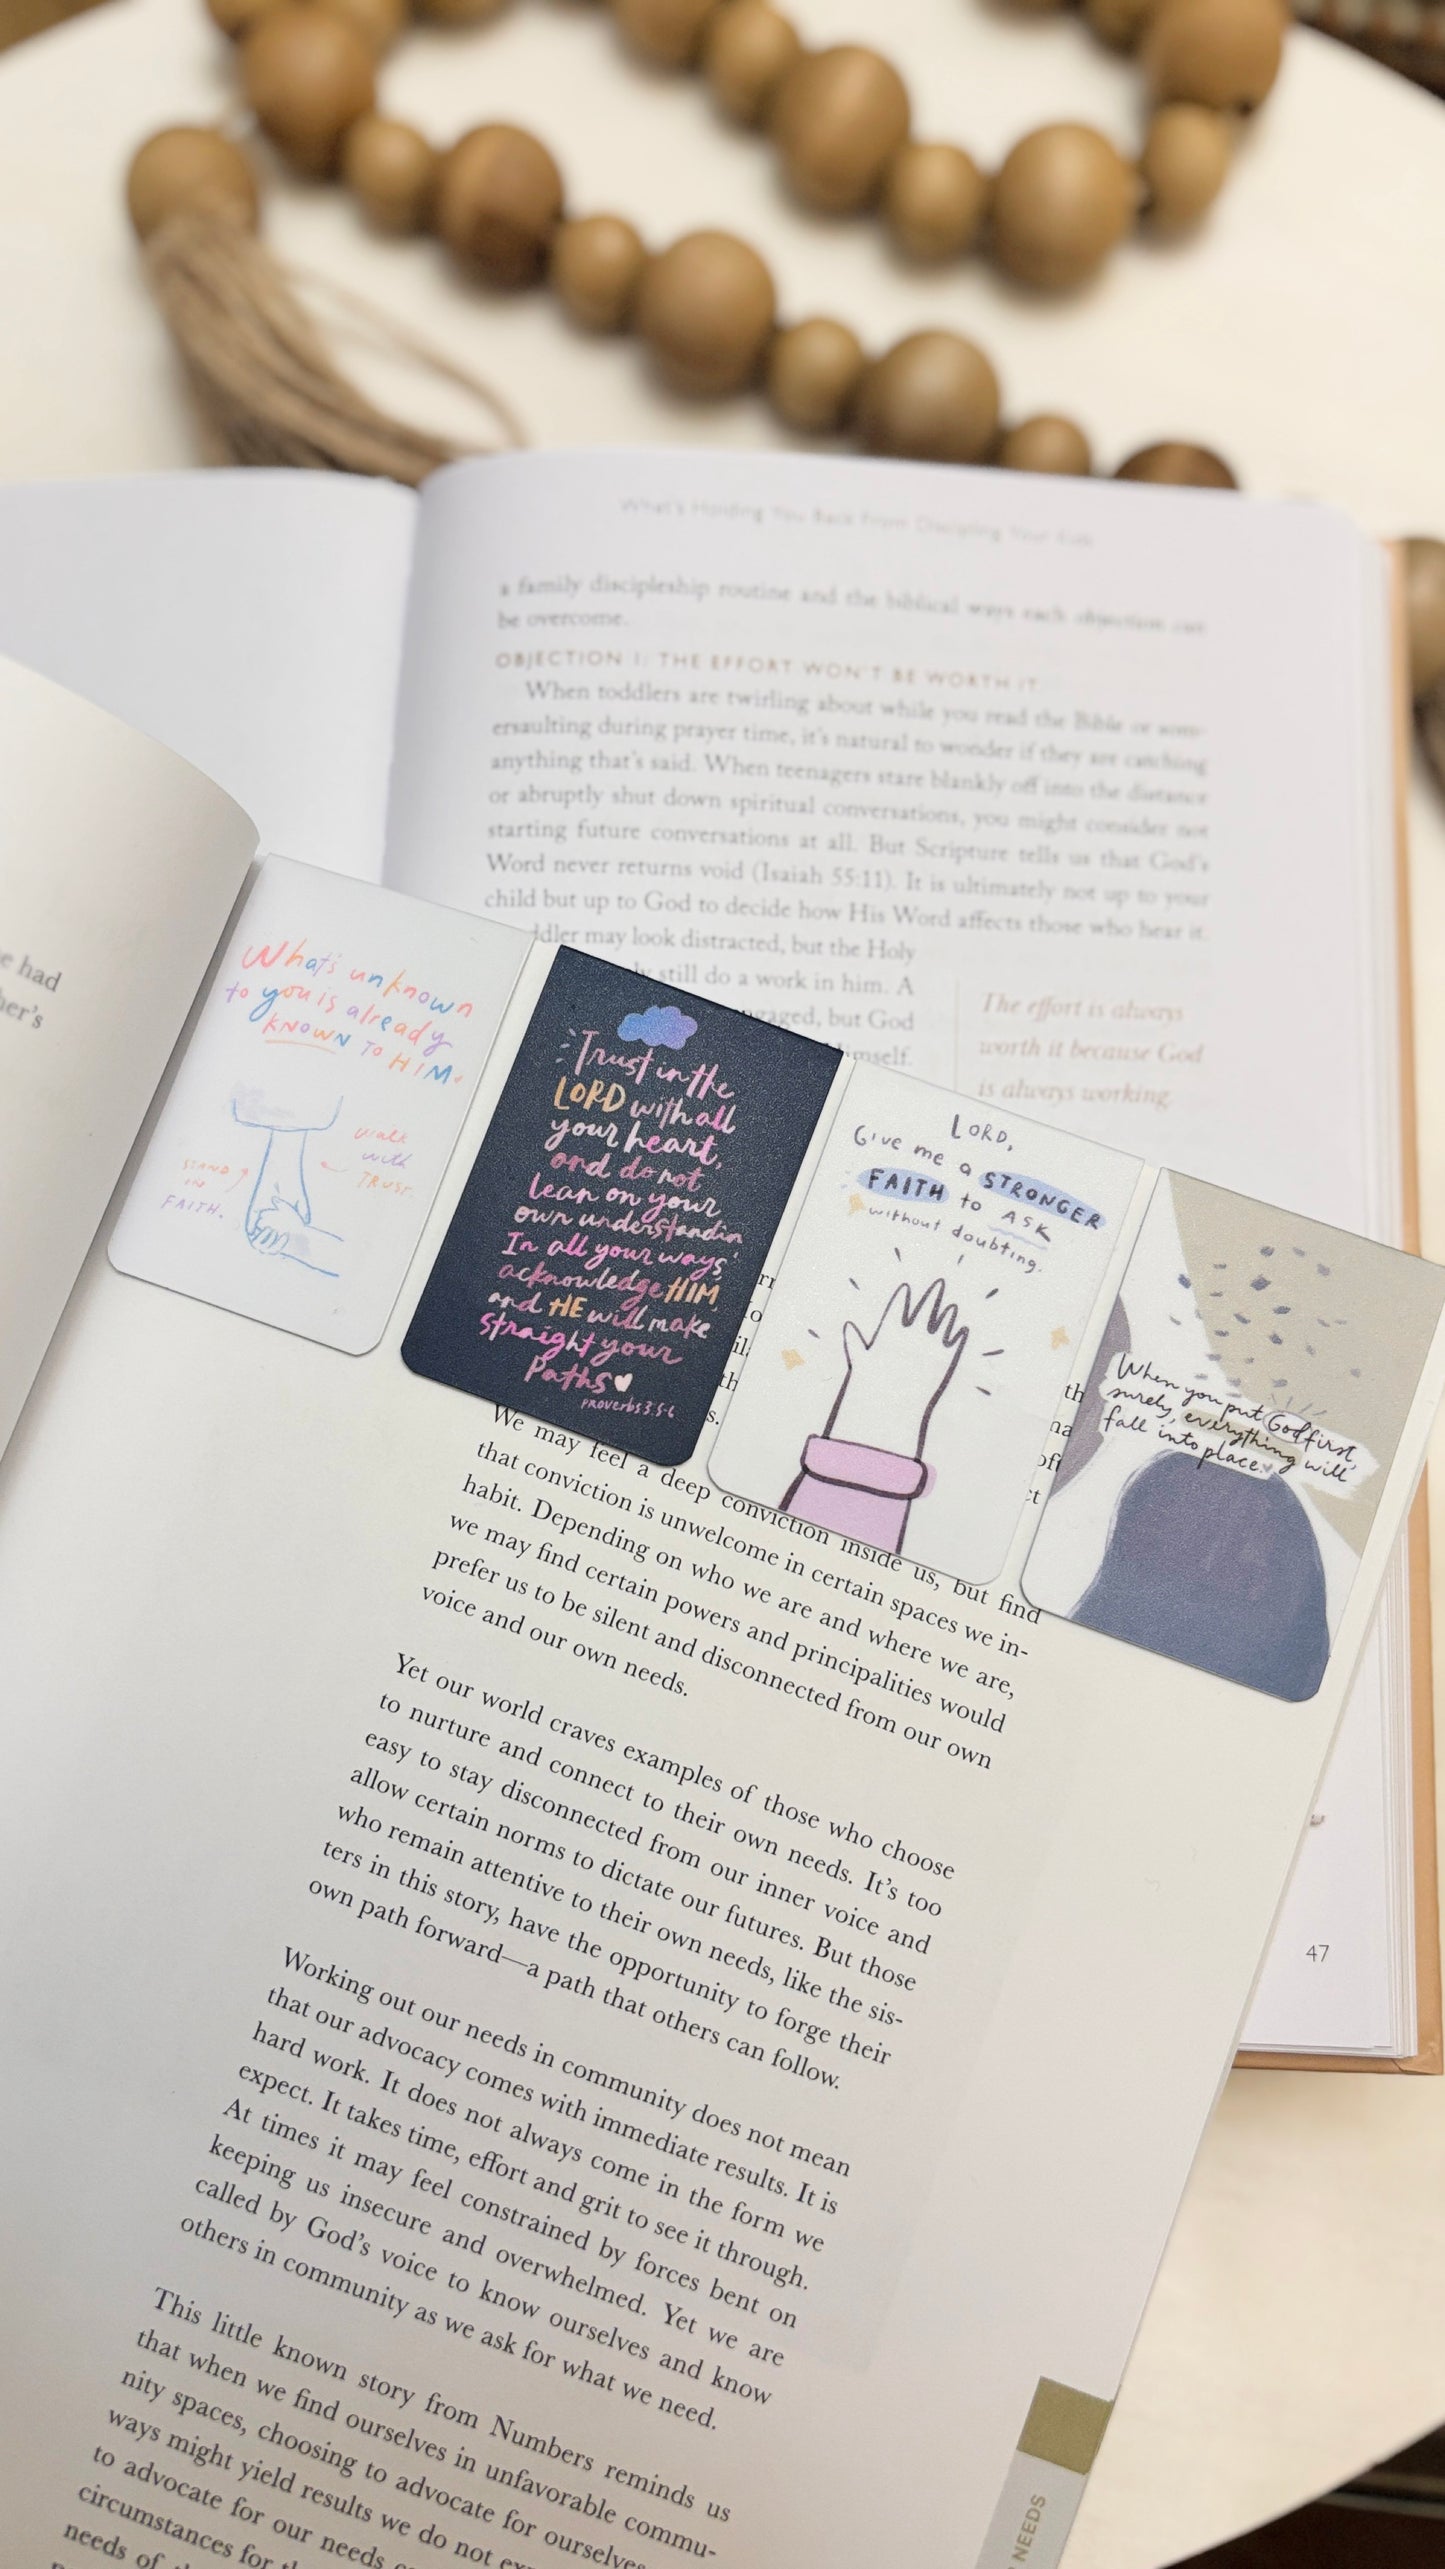 What's Holding You Back From Discipling Your Kids
a family discipleship routine and the biblical ways each objection can
be overcome.
OBJECTION 1: THE EFFORT WON'T BE WORTH IT
When toddlers are twirling about while you read the Bible or som-
ersaulting during prayer time, it's natural to wonder if they are catching
anything that's said. When teenagers stare blankly off into the distance
or abruptly shut down spiritual conversations, you might consider not
starting future conversations at all. But Scripture tells us that God's
Word never returns void (Isaiah 55:11). It is ultimately not up to your
child but up to God to decide how His Word affects those who hear it.
ddler may look distracted, but the Holy
still do a work in him. A
gaged, but God
Himself.
The effort is always
worth it because God
is always working.
47
e had
her's
What's unknown
to you is already
KNOWN TO HIM.
STAND
IN
FAITH.
walk
with
TRUST.
Trust in the
LORD with all
your heart,
and do not
lean on your
own understandin
In all your ways
acknowledge HIM,
and HE will make
straight your
Paths
proverbs 3:5-6
LORD,
Give me a STRONGER
FAITH to ASK
without doubting.
When you put God first,
surely, everything will
fall into place.
We may feel a deep conviction inside us, but find
that conviction is unwelcome in certain spaces we in-
habit. Depending on who we are and where we are,
we may find certain powers and principalities would
prefer us to be silent and disconnected from our own
voice and our own needs.
Yet our world craves examples of those who choose
to nurture and connect to their own needs. It's too
easy to stay disconnected from our inner voice and
allow certain norms to dictate our futures. But those
who remain attentive to their own needs, like the sis-
ters in this story, have the opportunity to forge their
own path forward—a path that others can follow.
Working out our needs in community does not mean
that our advocacy comes with immediate results. It is
hard work. It does not always come in the form we
expect. It takes time, effort and grit to see it through.
At times it may feel constrained by forces bent on
keeping us insecure and overwhelmed. Yet we are
called by God's voice to know ourselves and know
others in community as we ask for what we need.
This little known story from Numbers reminds us
that when we find ourselves in unfavorable commu-
nity spaces, choosing to advocate for ourselves
ways might yield results we do not
to advocate for our needs
circumstances for
needs of
NEEDS